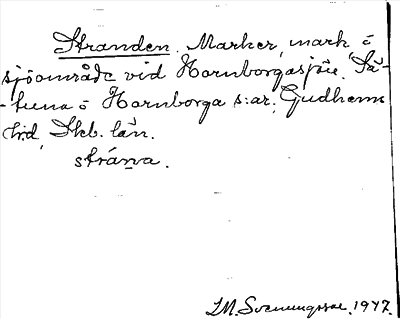 Stranden. Marker, mark i
sjöområde vid Hornborgasjön. Sä-
-tuna o Hornborga s:ar. Gudhems
hd, Skb. län.
stráṉa.
I.M. Svenungsson. 1947.